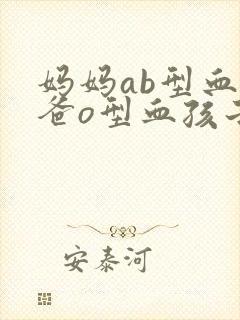 妈妈ab型血
爸o型血孩
安泰河